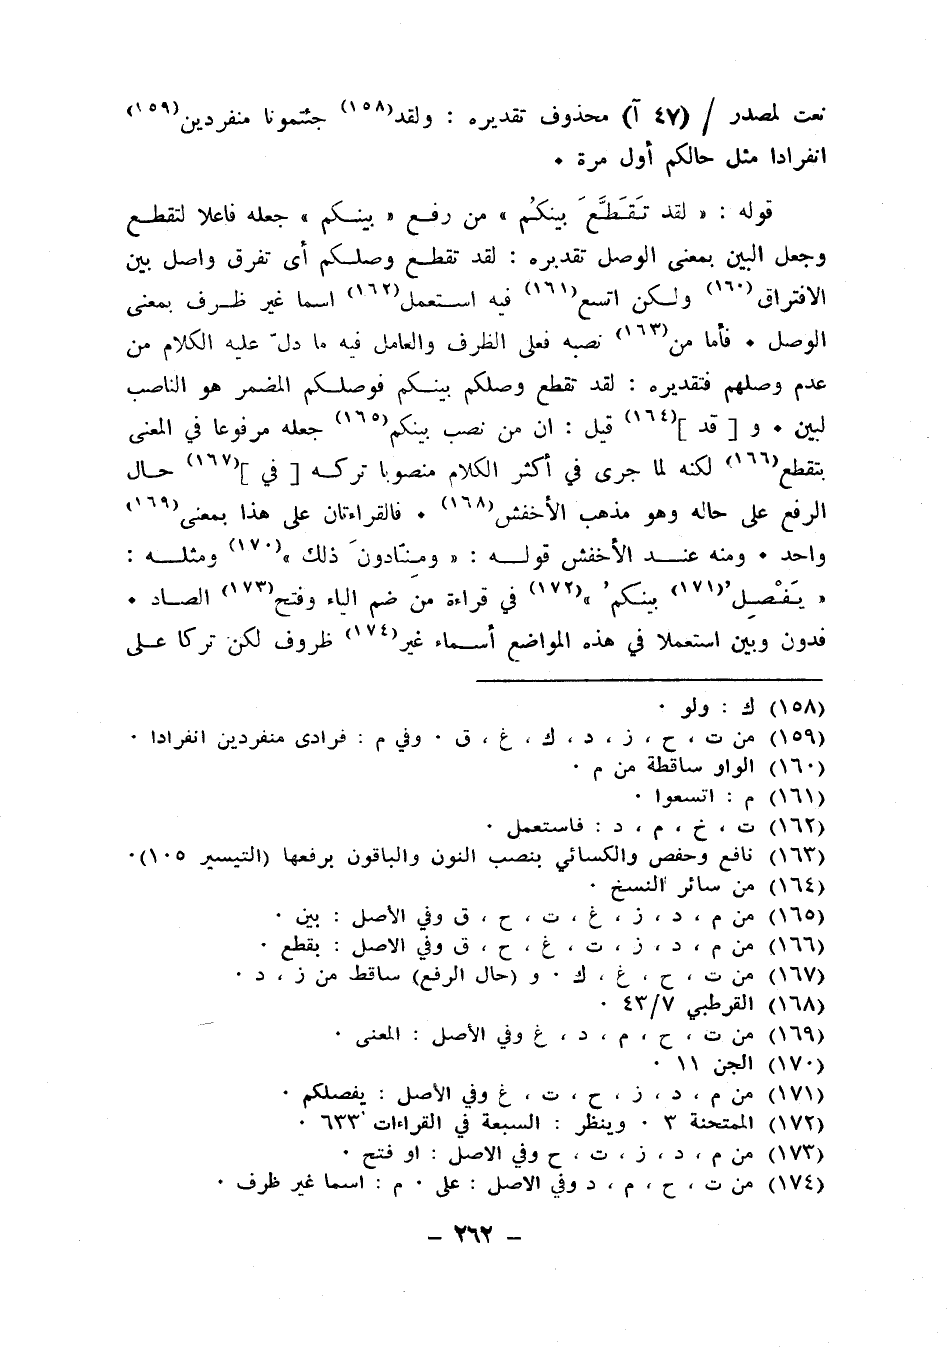 نعت لمصدر / (٤٧ آ) محذوف تقديره : ولقد(١٥٨) جئتمونا منفردين(١٥٩)
انفرادا مثل حالكم أول مرة ٠
قوله : « لقد تَقَطَّعَ بينكُم » من رفع « بينكم » جعله فاعلا لتقطع
وجعل البين بمعنى الوصل تقديره : لقد تقطع وصلكم أى تفرق واصل بين
الافتراق(١٦٠) ولكن اتسع(١٦١) فيه استعمل(١٦٢) اسما غير ظرف بمعنى
الوصل ٠ فأما من(١٦٣) نصبه فعلى الظرف والعامل فيه ما دلّ عليه الكلام من
عدم وصلهم فتقديره : لقد تقطع وصلكم بينكم فوصلكم المضمر هو الناصب
لبين ٠ و [ قد ](١٦٤) قيل : ان من نصب بينكم(١٦٥) جعله مرفوعا في المعنى
بتقطع(١٦٦) لكنه لما جرى في أكثر الكلام منصوبا تركه [ في ](١٦٧) حال
الرفع على حاله وهو مذهب الأخفش(١٦٨) ٠ فالقراءتان على هذا بمعنى(١٦٩)
واحد ٠ ومنه عند الأخفش قوله : « ومنّادونَ ذلك »(١٧٠) ومثله :
« يَفْصِل’(١٧١) بينكم’ »(١٧٢) في قراءة من ضم الياء وفتح(١٧٣) الصاد ٠
فدون وبين استعملا في هذه المواضع أسماء غير(١٧٤) ظروف لكن تركا على
(١٥٨) ك : ولو ٠
(١٥٩) من ت ، ح ، ز ، د ، ك ، غ ، ق ٠ وفي م : فرادى منفردين انفرادا ٠
(١٦٠) الواو ساقطة من م ٠
(١٦١) م : اتسعوا ٠
(١٦٢) ت ، خ ، م ، د : فاستعمل ٠
(١٦٣) نافع وحفص والكسائي بنصب النون والباقون برفعها (التيسير ١٠٥)٠
(١٦٤) من سائر النسخ ٠
(١٦٥) من م ، د ، ز ، غ ، ت ، ح ، ق وفي الأصل : بين ٠
(١٦٦) من م ، د ، ز ، ت ، غ ، ح ، ق وفي الاصل : بقطع ٠
(١٦٧) من ت ، ح ، غ ، ك ٠ و (حال الرفع) ساقط من ز ، د ٠
(١٦٨) القرطبي ٤٣/٧ ٠
(١٦٩) من ت ، ح ، م ، د ، غ وفي الأصل : المعنى ٠
(١٧٠) الجن ١١ ٠
(١٧١) من م ، د ، ز ، ح ، ت ، غ وفي الأصل : يفصلكم ٠
(١٧٢) الممتحنة ٣ ٠ وينظر : السبعة في القراءات ٦٣٣ ٠
(١٧٣) من م ، د ، ز ، ت ، ح وفي الاصل : او فتح ٠
(١٧٤) من ت ، ح ، م ، د وفي الاصل : على ٠ م : اسما غير ظرف ٠
– ٢٦٢ –